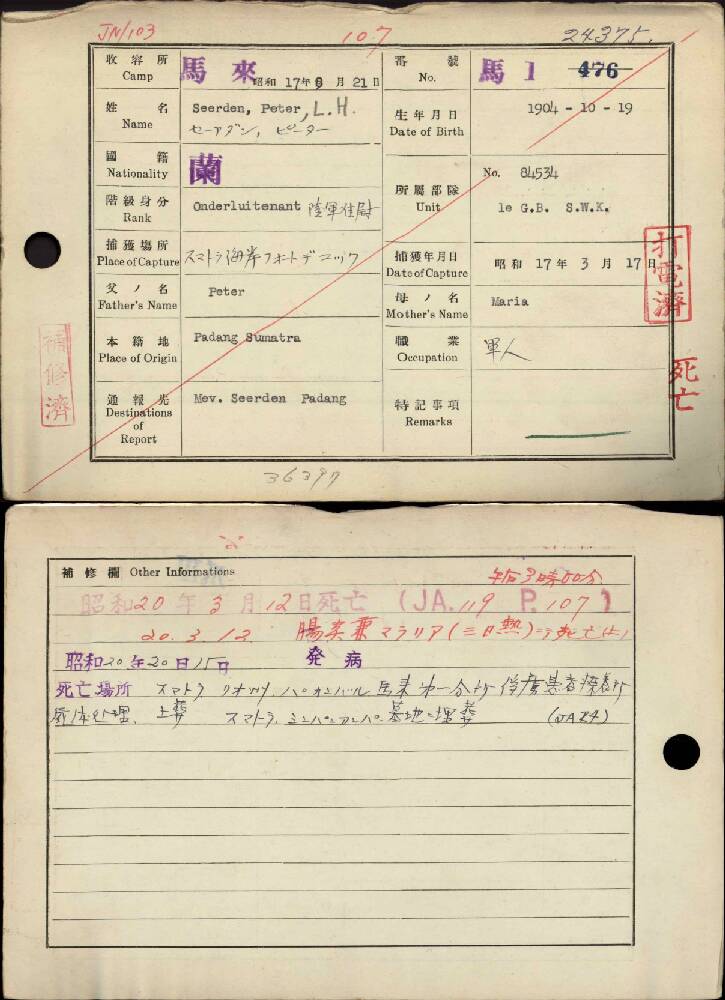 JN/103
107
24375.
收容所 Camp 馬來 昭和 17年8月21日
番號 No. 馬 1 476
姓名 Name Seerden, Peter, L.H.
セーアダン, ピーター
生年月日 Date of Birth 1904 - 10 - 19
國籍 Nationality 蘭
所屬部隊 Unit No. 84534
1e G.B. S.W.K.
階級身分 Rank Onderluitenant 陸軍准尉
捕獲場所 Place of Capture スマトラ海岸フォートデコック
捕獲年月日 Date of Capture 昭和 17年3月17日
打電濟
父ノ名 Father's Name Peter
母ノ名 Mother's Name Maria
本籍地 Place of Origin Padang Sumatra
職業 Occupation 軍人
補修濟
死亡
通報先 Destinations of Report Mev. Seerden Padang
特記事項 Remarks
36397
補修欄 Other Informations
午后3時00分
昭和20年3月12日死亡 (JA.119 P.107)
20.3.12. 腸炎兼マラリア(三日熱)
昭和20年20日15日 発病
死亡場所 スマトラ リオ州 パカンバル 馬来 第一分所 俘虜患者療養所
死体処理, 土葬 スマトラ, 墓地ニ埋葬 (JA24)